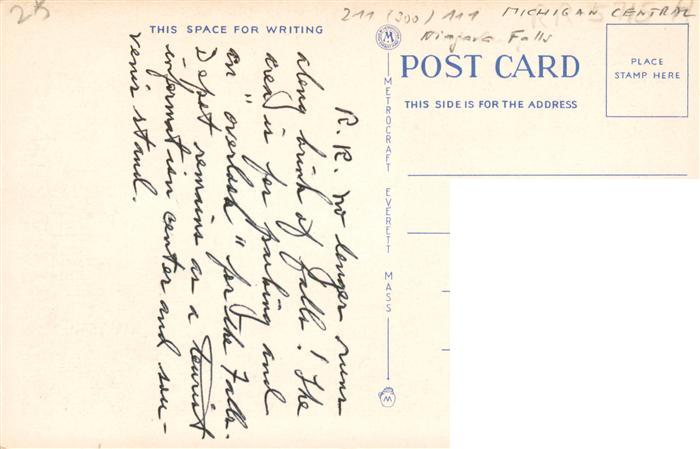 25
211 (300) 111 MICHIGAN CENTRAL
Niagara Falls
THIS SPACE FOR WRITING
POST CARD
PLACE
STAMP HERE
THIS SIDE IS FOR THE ADDRESS
METROCRAFT EVERETT MASS
M
R.R. no longer runs
along brink of falls! The
area is for parking and
an "overlook" for the Falls.
Depot remains as a tourist
information center and sou-
venir stand.